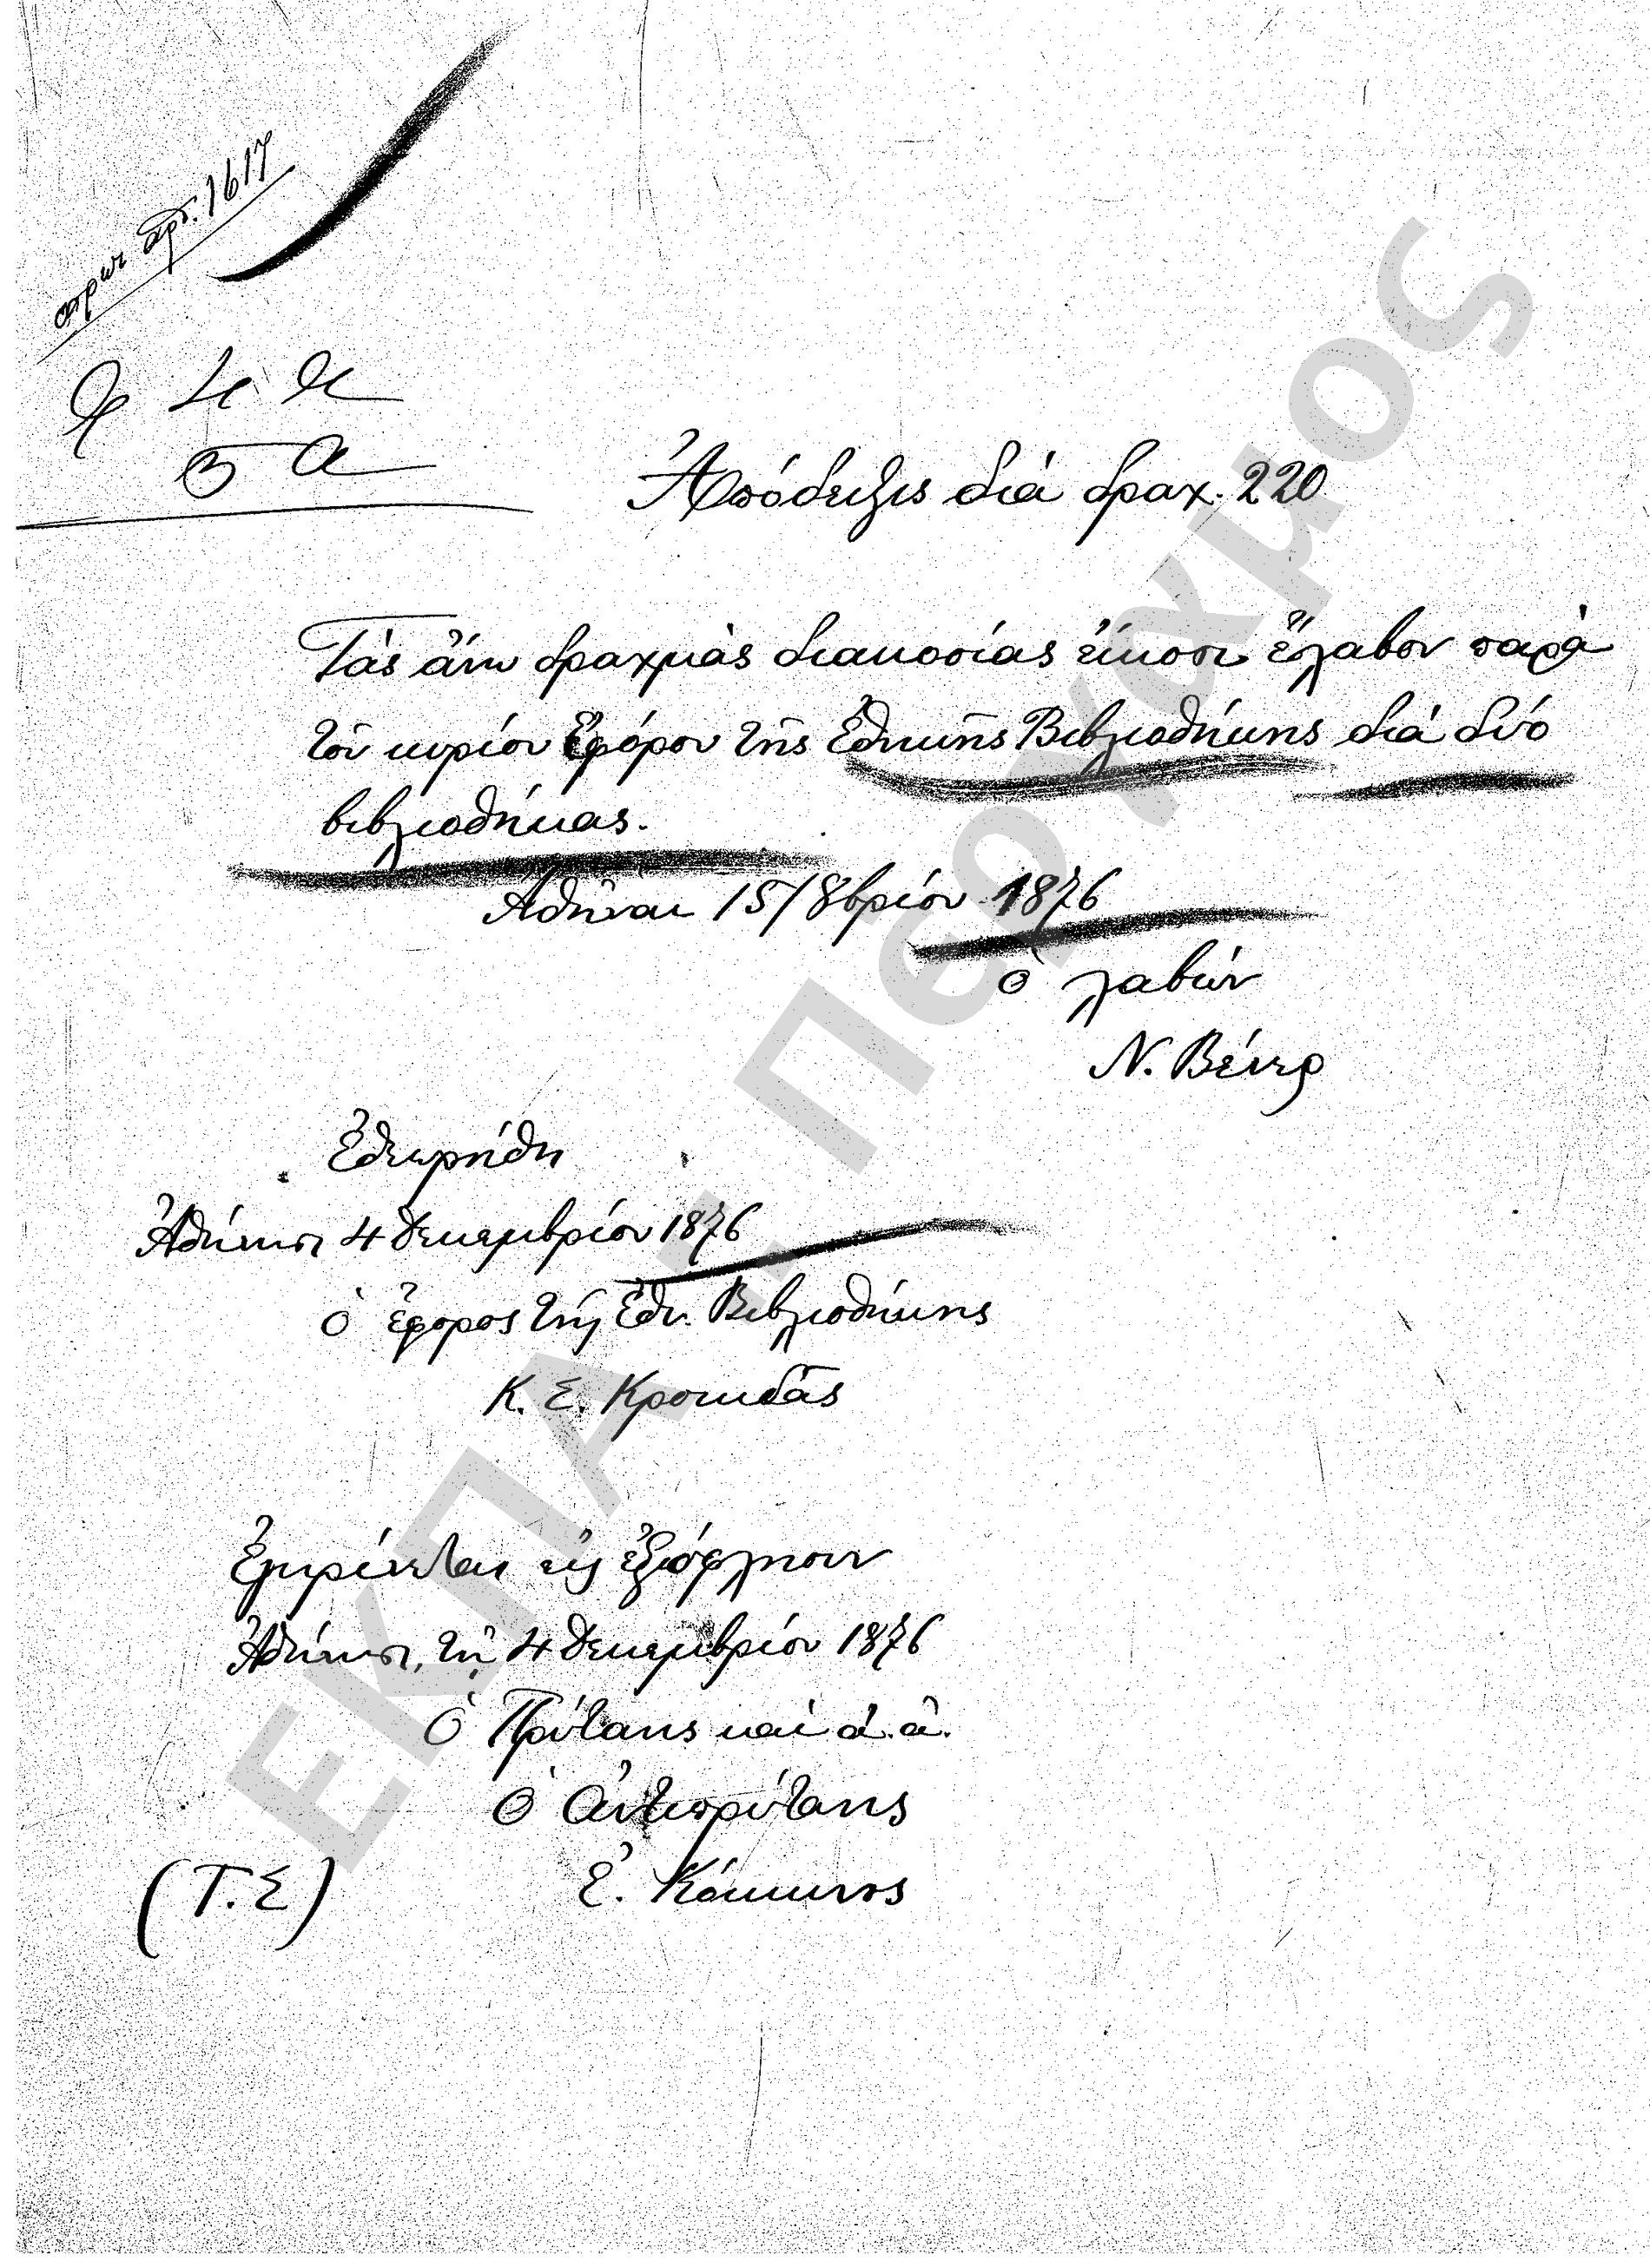 πρωτ αρτ. 1617
Ἀπόδειξις διά δραχ. 220
Τάς ἄνω δραχμάς διακοσίας εἴκοσι ἔλαβον παρά
τοῦ κυρίου Ἐφόρου τῆς Ἐθνικῆς Βιβλιοθήκης διά δύο
βιβλιοθήκας.
Ἀθῆναι 15/8βρίου 1876
ὁ λαβών
Ν. Βέντρ
Ἐθεωρήθη
Ἀθήνησι 4 Δεκεμβρίου 1876
ὁ ἔφορος τῆς Ἐθν. Βιβλιοθήκης
Κ. Σ. Κροκιδᾶς
Ἐγκρίνεται εἰς ἐξόφλησιν
Ἀθήνησι, τῇ 4 Δεκεμβρίου 1876
Ὁ Πρύτανις καὶ ἀ. ἀ.
Ὁ Ἀντιπρύτανις
(Τ.Σ) Ἐ. Κόκκινος
ΕΚΠΑ - Περγαμος